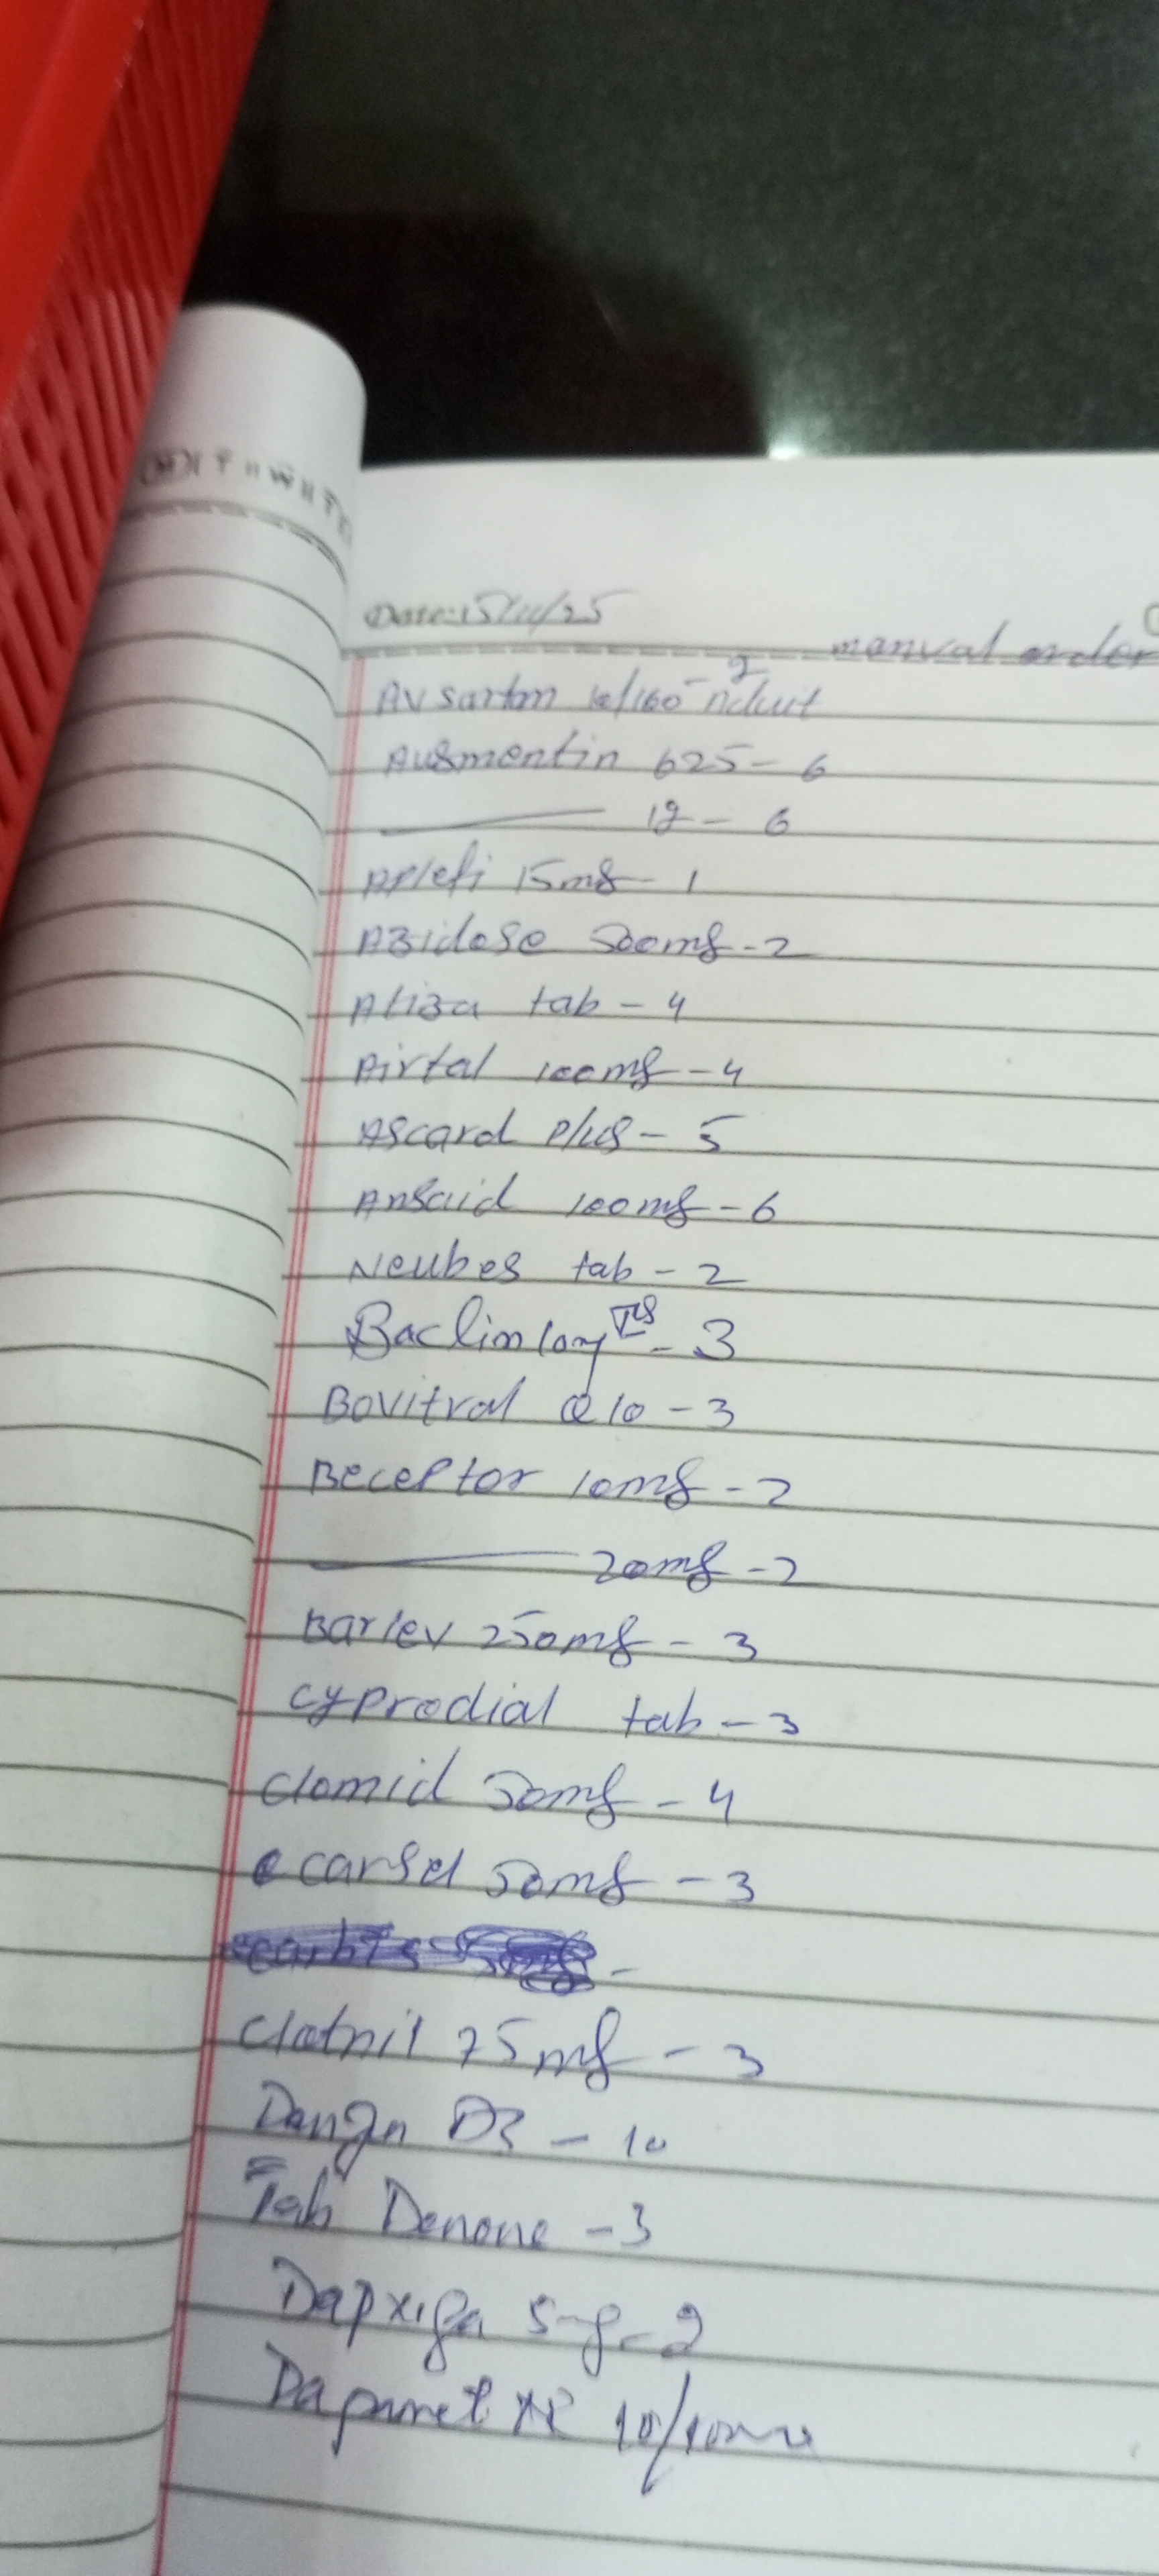 Date: 15/11/25
manual order
Avsartan 10/160 - 2
Augmentin 625 - 6
1g - 6
Aplefi 15mg - 1
Azidose 500mg - 2
Aliza tab - 4
Airtal 100mg - 4
Ascard Plus - 5
Ansaid 100mg - 6
Neubes tab - 2
Baclin 10mg - 3
Bovitral Q10 - 3
Beceptor 10mg - 2
20mg - 2
Barlev 250mg - 3
Cyprodial tab - 3
Clomid 50mg - 4
Carsel 50mg - 3
Clotnil 75mg - 3
D3 - 10
Tab Denone - 3
Dapxiga 5mg - 2
Dapamet XR 10/1000